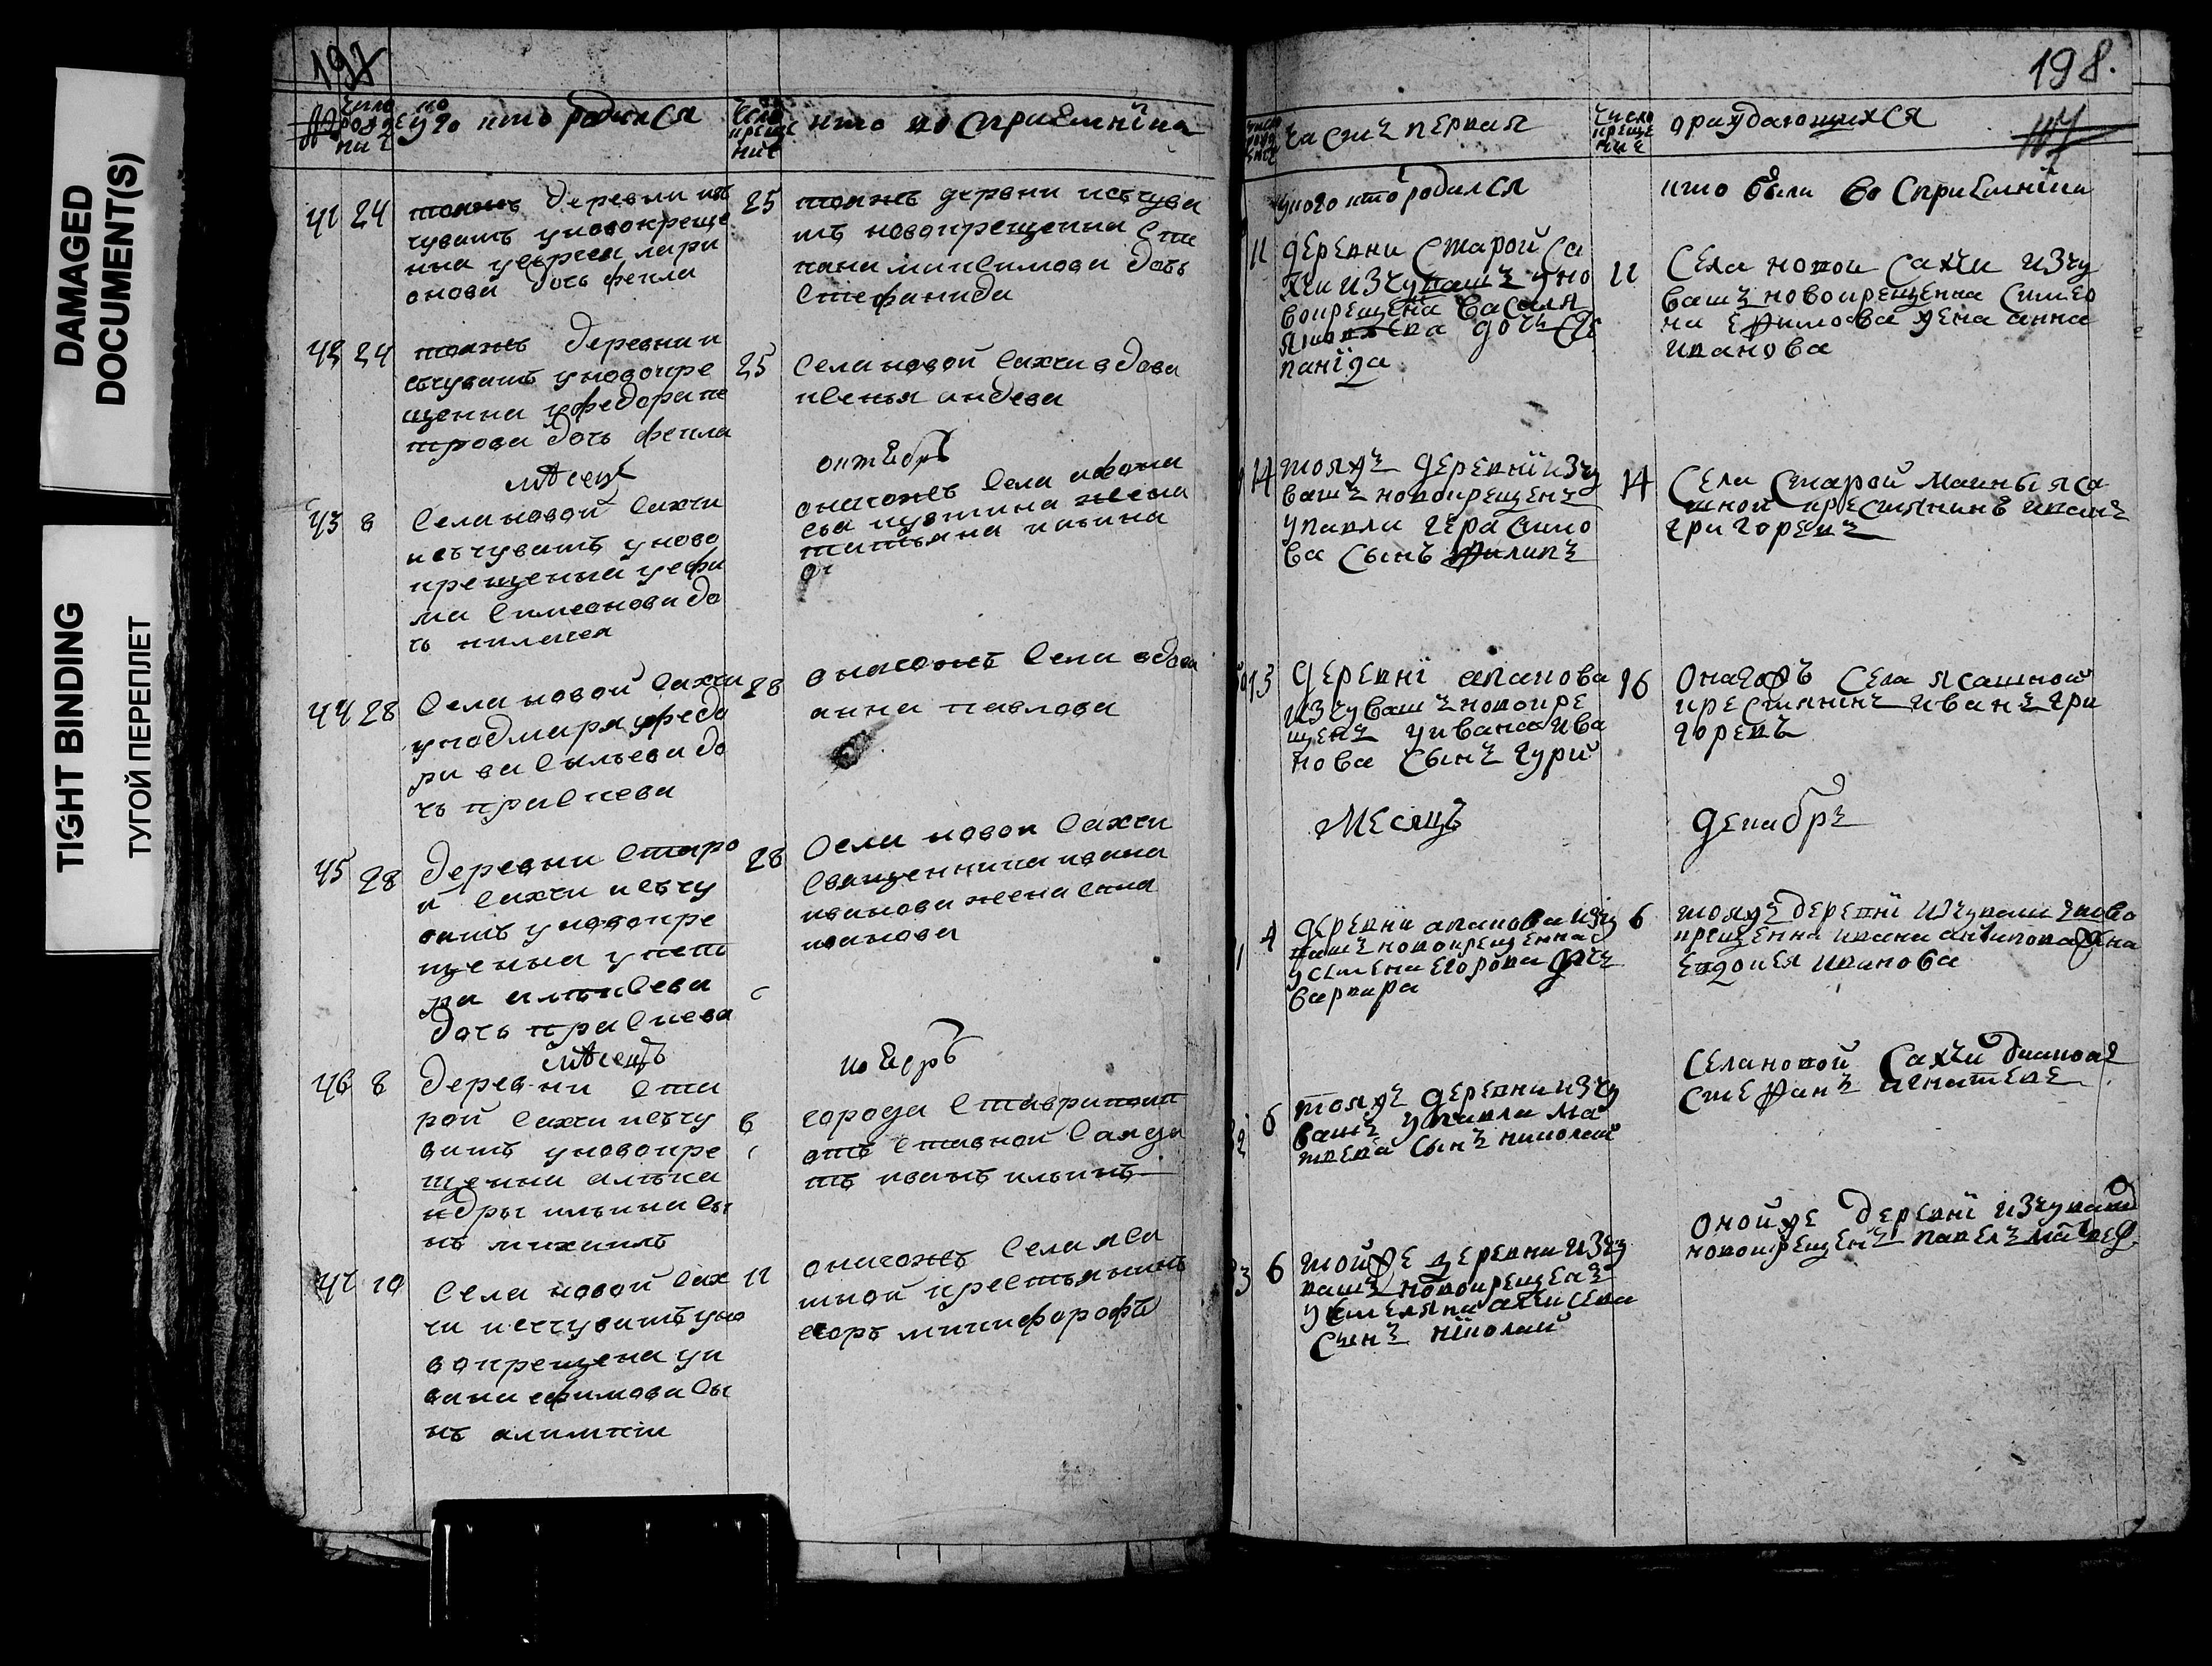 DAMAGED
DOCUMENT(S)
TIGHT BINDING
ТУГОЙ ПЕРЕПЛЕТ
197
число
рожде
ния
у кого кто родился
число
креще
ния
кто восприемники
41 24
тояжъ деревни изъ
чувашъ у новокреще
нна лари
онова дочь фекла
25
тояжъ дервни исъчува
шъ новокрещенна сте
пана максимова дочь
стефанида
42 24
тояжъ деревни и
съчувашъ уновокре
щенна уфедора пе
трова дочь фекла
25
села новой сахчи вдова
мѣсецъ
октебръ
43 8
села новой сахчи
исъчувашъ уново
крещенна уефи
ма симеонова до
чь
оногожъ села афона
сья жена
татьяна ильина
44 28
села новой сахчи
уфедо
ра васильева до
чь праскева
28
оногожъ села вдова
анна павлова
45 28
деревни старо
й сахчи исъчу
вашъ уновокре
щенна упет
ра алексеева
дочь праскева
28
села новой сахчи
священника ивана
иванова жена
иванова
мѣсецъ
ноебръ
46 8
деревни ста
рой сахчи исъчу
вашъ уновокре
щенна алекса
ндры ильина сы
нъ михаилъ
8
города ставропол
отъставной салда
тъ иванъ ильинъ
47 10
села новой сах
чи исчувашъ уно
вокрещена уи
вана ефимова сы
нъ
11
оногожъ села яса
шной крестьянинъ
егоръ никифорофъ
198.
число
рожд
ение
часть первая
число
креще
ние
ораждающихся
укого кто родился
кто были восприемники
11
деревни старой са
хчи изчувашъ уно
вокрещена василя
яковлева дочь сте
панида
11
села новои сахчи изчу
вашъ новокрещенна симео
на ефимова жена анна
иванова
14
тояжъ деревни изчу
вашъ новокрещенъ
упавла герасимо
ва сынъ филипъ
14
села старой маины яса
шной крестянинъ иванъ
григоревъ
13
деревни апанова
изчувашъ новокре
щенъ уивана ива
нова сынъ гурий
16
оногожъ села ясашной
крестянинъ иванъ гри
горевъ
месяцъ
декабръ
4
деревни апанова изчу
вашъ новокрещенна
усемена егорова дочь
варвара
6
тояжъ деревни изчуваш ново
крещенна ивана антипова жена
евдокея иванова
6
тояжъ деревни изчу
вашъ упавла ма
твева сынъ николай
села новой сахчи диаконъ
стефанъ игнатевъ
3 6
тойже деревни изчу
вашъ новокрещенъ
уемеляна алексева
сынъ николай
онойже деревни изчуваш
новокрещенъ павелъ матвеф